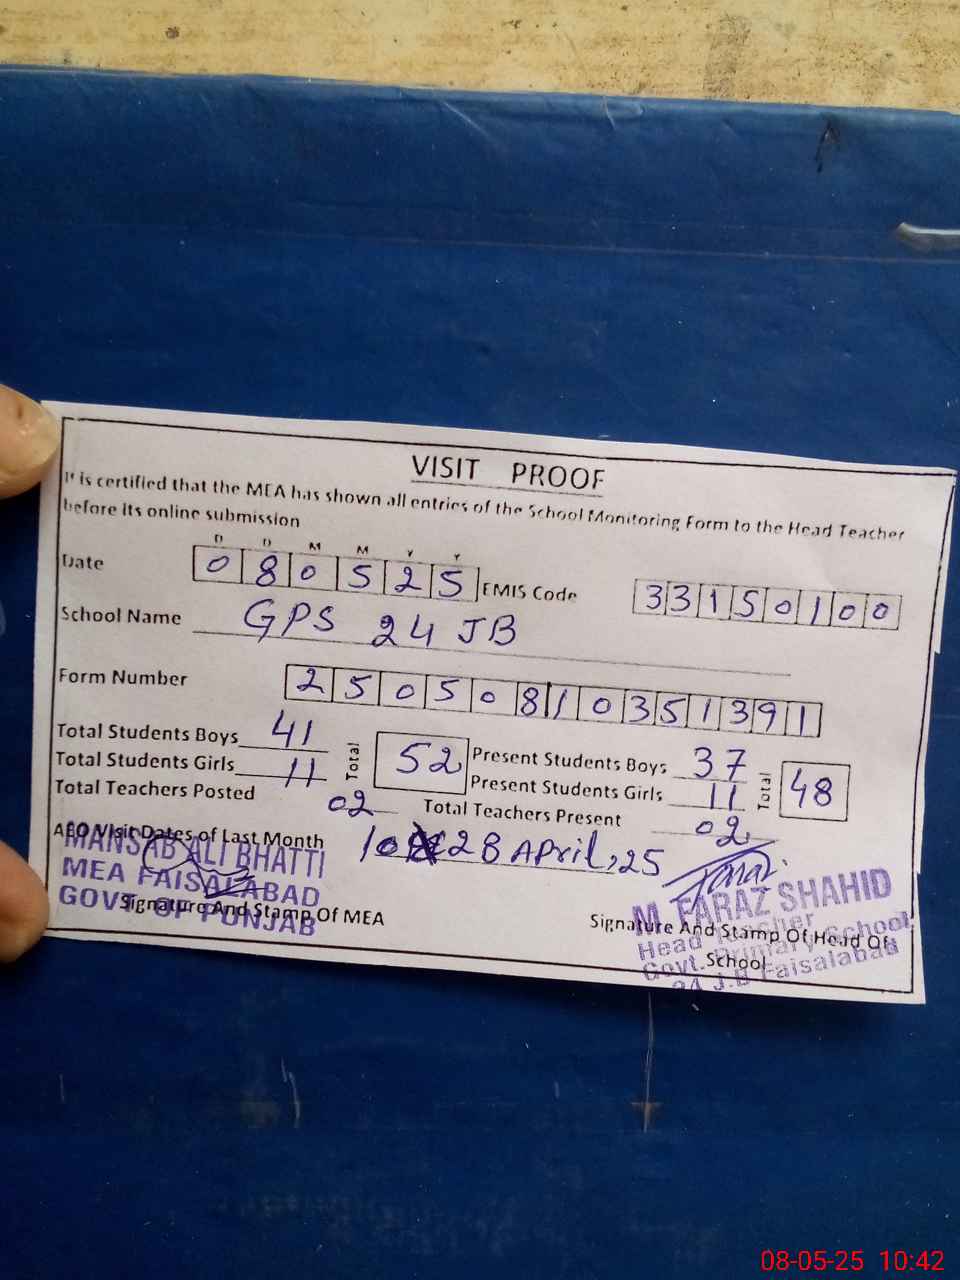 VISIT PROOF
It is certified that the MEA has shown all entries of the School Monitoring Form to the Head Teacher
before its online submission
D D M M Y Y
Date 0 8 0 5 2 5 EMIS Code 3 3 1 5 0 1 0 0
School Name GPS 24 JB
Form Number 2 5 0 5 0 8 1 0 3 5 1 3 9 1
Total Students Boys 41 Total 52 Present Students Boys 37 Total 48
Total Students Girls 11 Present Students Girls 11
Total Teachers Posted 02 Total Teachers Present 02
AEO Visit Dates of Last Month 10 28 April, 25
MANSAB ALI BHATTI
MEA FAISALABAD
GOVT. OF PUNJAB
Signature And Stamp Of MEA
M. FARAZ SHAHID
Head Teacher
Govt. Primary School
24 J.B Faisalabad
Signature And Stamp Of Head Of
School
08-05-25 10:42